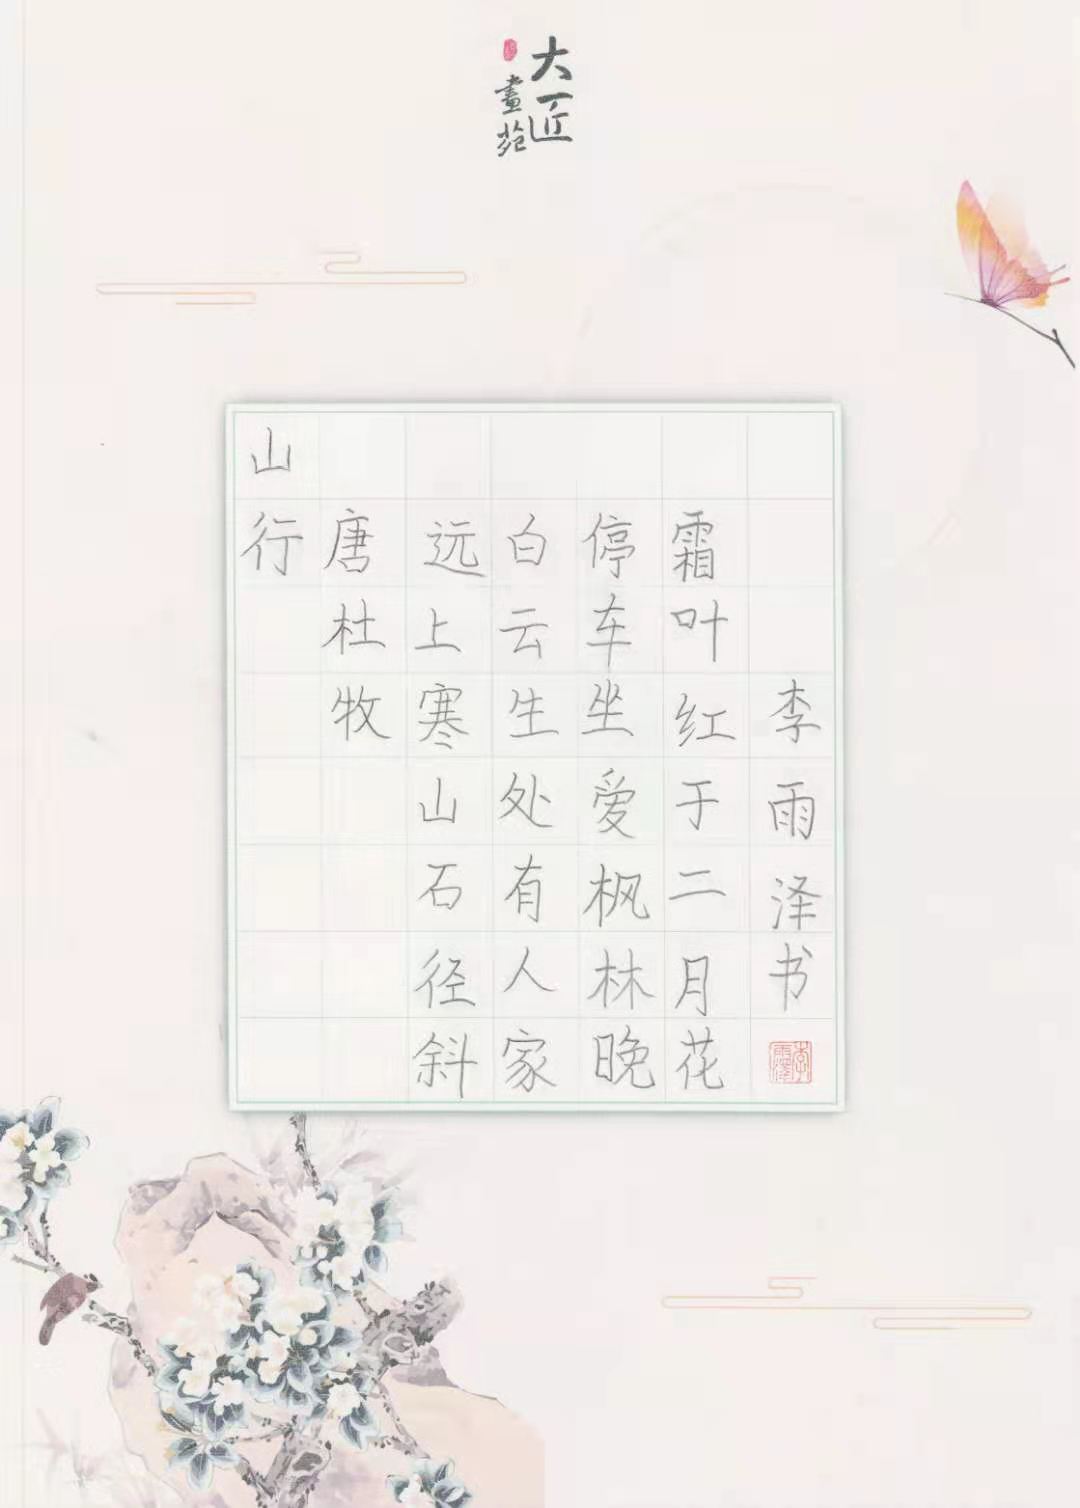 大匠
畫苑
山行
唐杜牧
远上寒山石径斜
白云生处有人家
停车坐爱枫林晚
霜叶红于二月花
李雨泽书
李雨澤